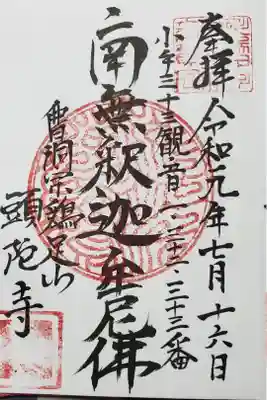 奉拝 令和元年七月十六日
小手三十三観音 一、三十二、三十三番
南無釈迦牟尼佛
曹洞宗鶏足山
頭陀寺